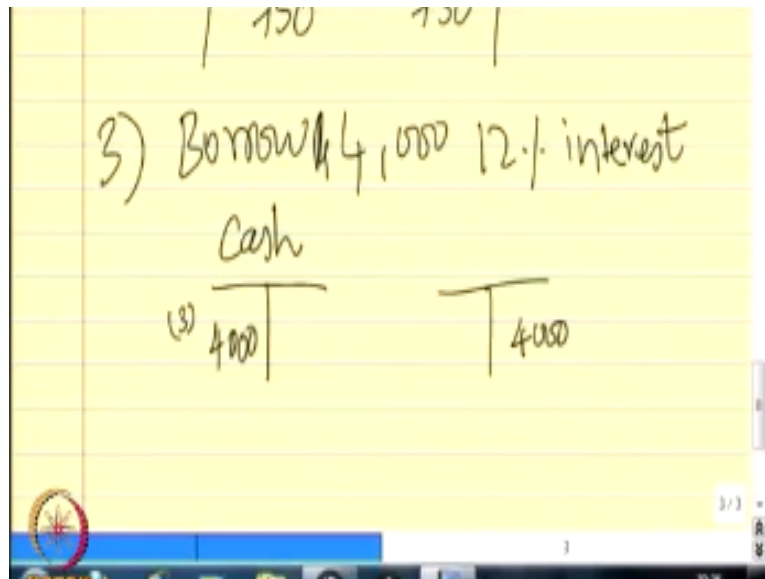 150 150
3) Borrow 4,000 12% interest
Cash
(3) 4000 4000
3/3
3